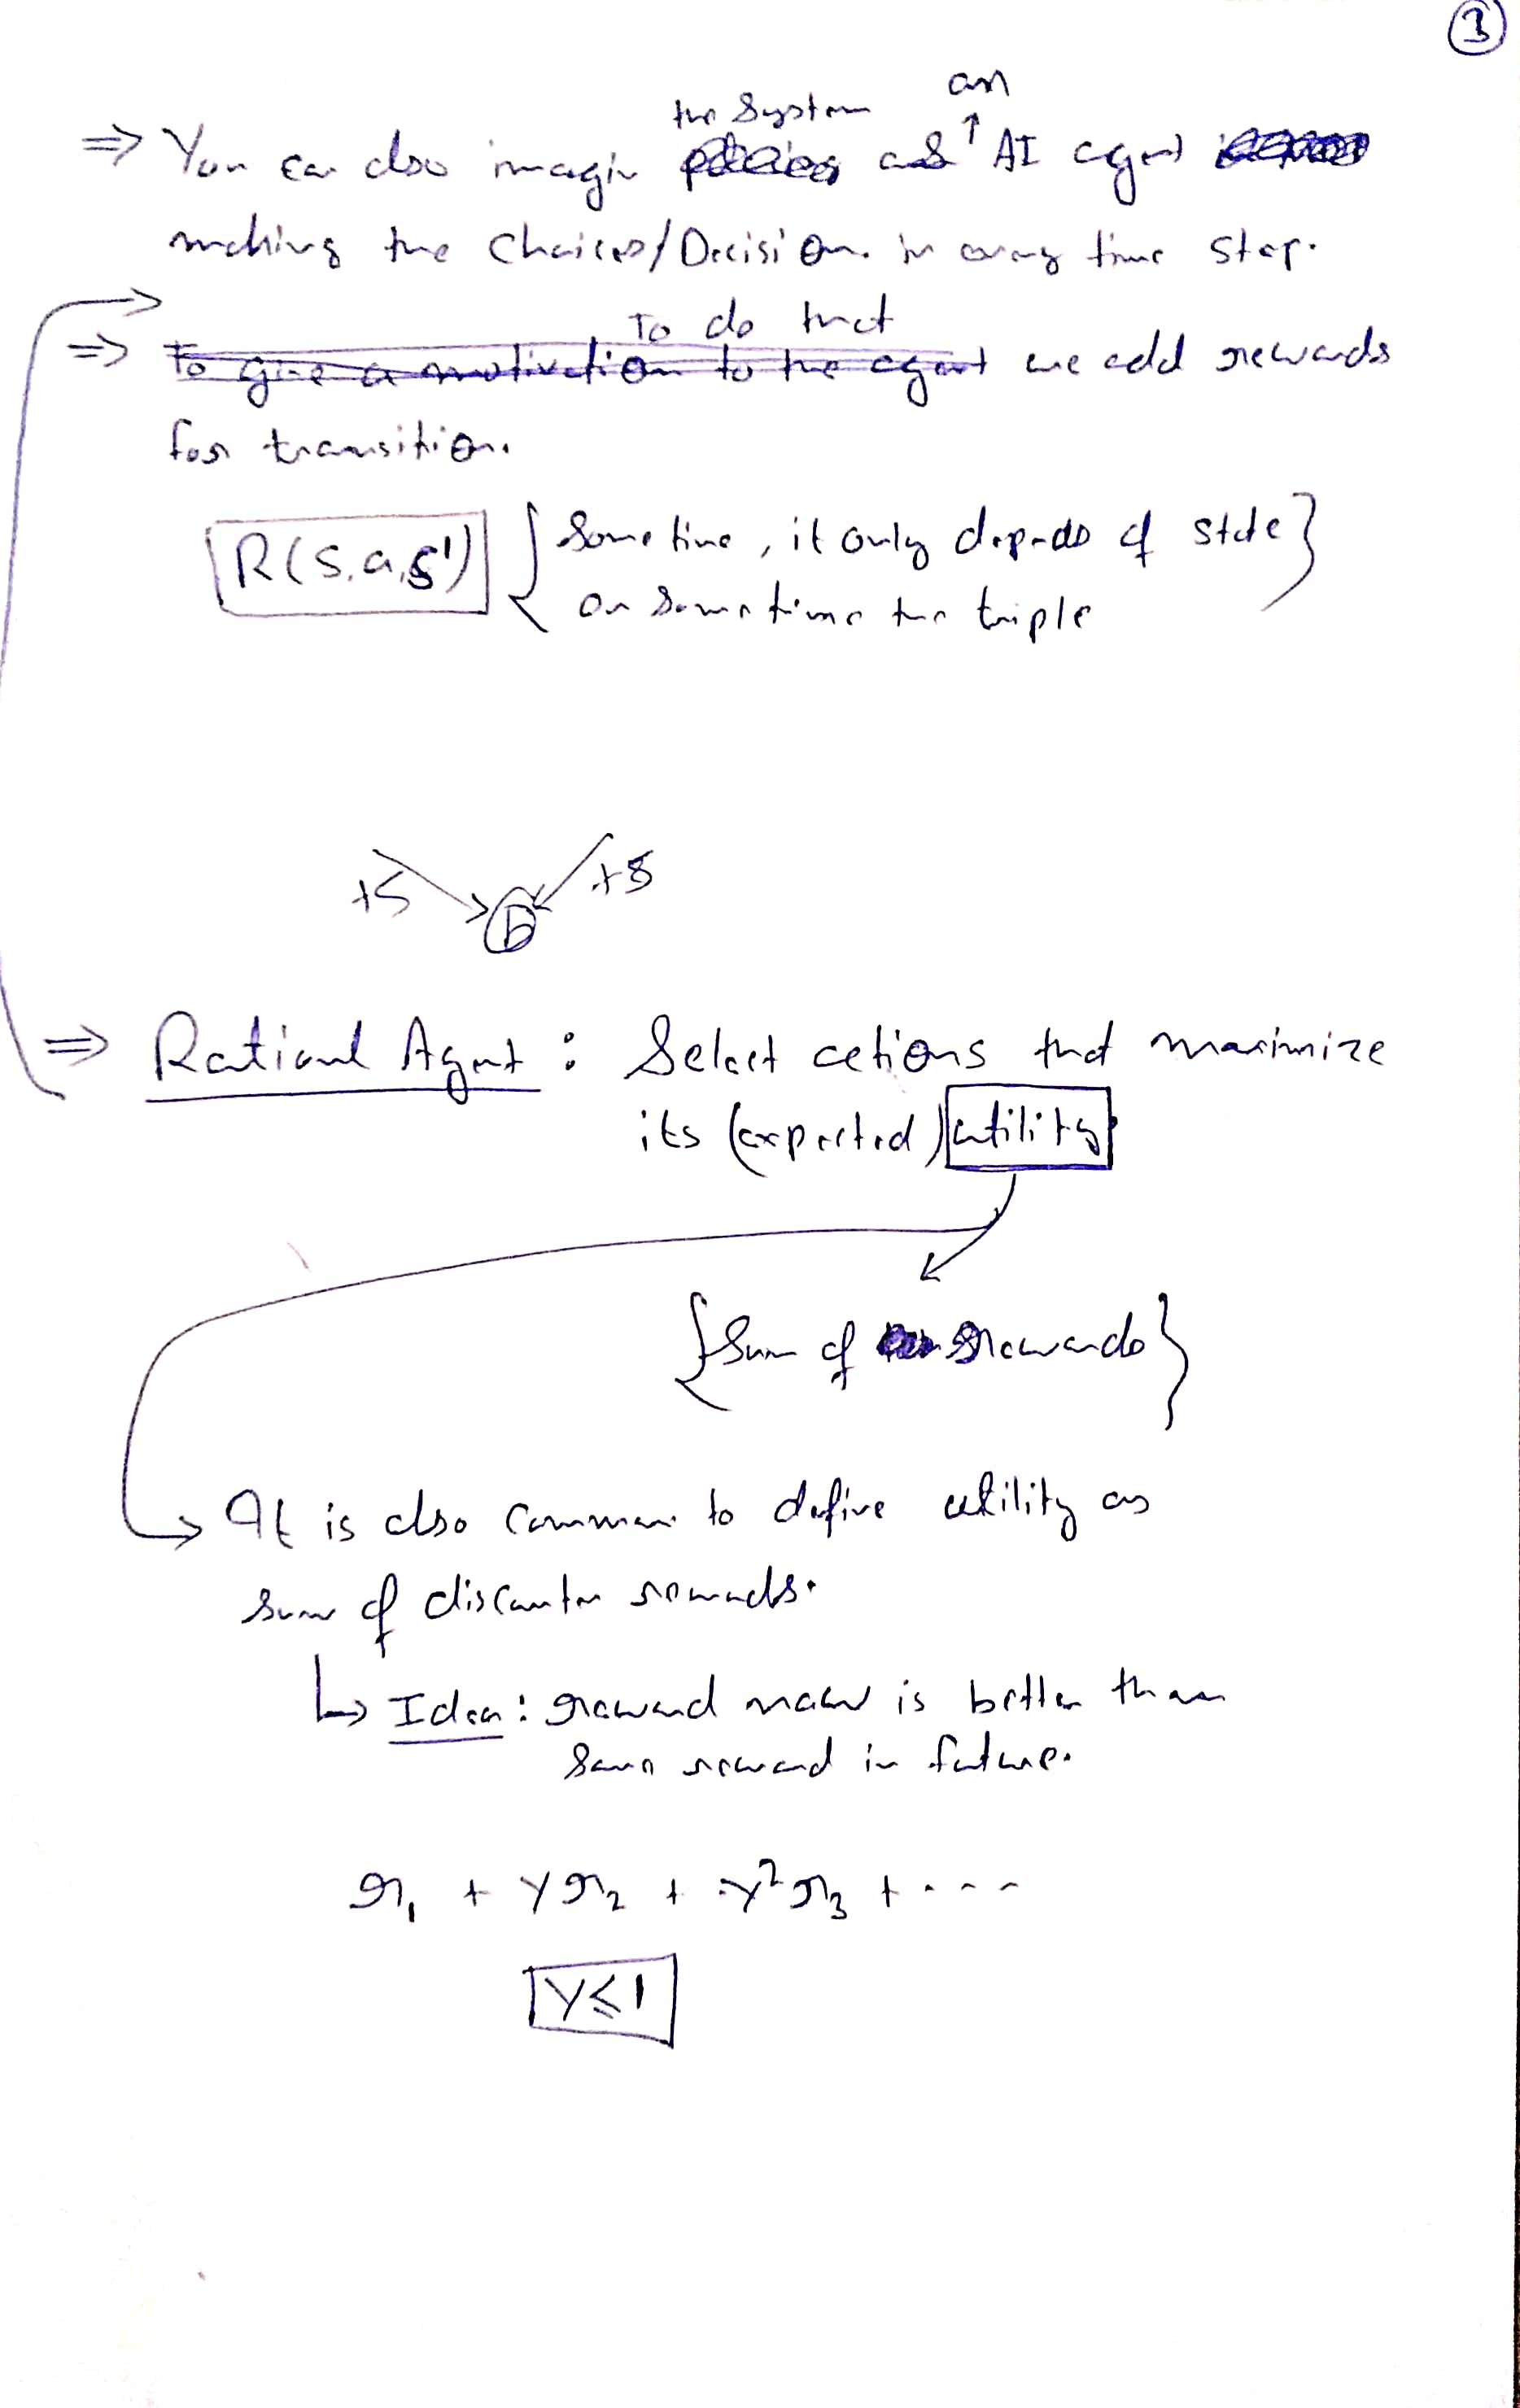 3
the System an
⇒ You can also imagin as ↑ AI agent
making the Choices/Decision. in every time step.
To do that
⇒ To give a motivation to the agent we add rewards
for transition.
R(s,a,s') { Sometime, it only depends of state }
or sometime the triple
+5 +8
b
⇒ Rational Agent : Select actions that maximize
its (expected) utility
{ Sum of rewards }
It is also common to define utility as
sum of discounter rewards.
↳ Idea : reward now is better than
same reward in future.
r₁ + γr₂ + γ²r₃ + ----
γ≤1